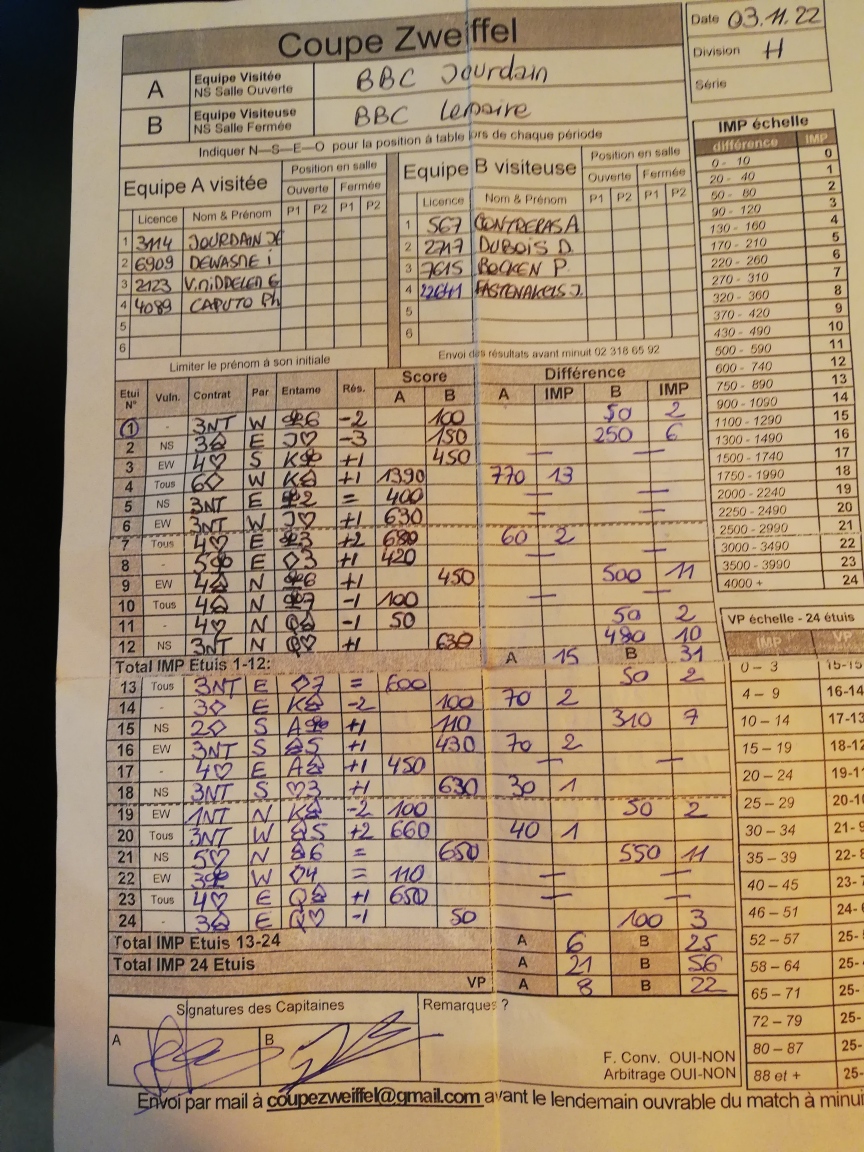 Coupe Zweiffel
Date 03.11.22
Division H
Série
A Equipe Visitée NS Salle Ouverte BBC Jourdain
B Equipe Visiteuse NS Salle Fermée BBC Lemaire
Indiquer N—S—E—O pour la position à table lors de chaque période
Equipe A visitée Position en salle
Ouverte Fermée
Licence Nom & Prénom P1 P2 P1 P2
1 3114 JOURDAIN
2 6909 DEWASNE i
3 2123
4 4089 CAPUTO Ph
5
6
Equipe B visiteuse Position en salle
Ouverte Fermée
Licence Nom & Prénom P1 P2 P1 P2
1 567 CONTRERAS A
2 2717 DUBOIS D.
3 7615 BOCKEN P.
4 22641 FASTENAKELS J.
5
6
Limiter le prénom à son initiale
Envoi des résultats avant minuit 02 318 65 92
Score Différence
Etui N° Vuln. Contrat Par Entame Rés. A B A IMP B IMP
1 - 3NT W ♣6 -2 100 50 2
2 NS 3♤ E J♡ -3 150 250 6
3 EW 4♡ S K♣ +1 450 — —
4 Tous 6◇ W K♤ +1 1390 770 13
5 NS 3NT E ♣2 = 400 — —
6 EW 3NT W J♡ +1 630 — —
7 Tous 4♡ E ♣3 +2 680 60 2
8 - 5♣ E ◇3 +1 420 — —
9 EW 4♤ N ♣6 +1 450 500 11
10 Tous 4♤ N ♣7 -1 100 — —
11 - 4♡ N Q♤ -1 50 50 2
12 NS 3NT N Q♡ +1 630 490 10
Total IMP Etuis 1-12: A 15 B 31
13 Tous 3NT E ◇7 = 600 50 2
14 - 3◇ E K♤ -2 100 70 2
15 NS 2◇ S A♣ +1 110 310 7
16 EW 3NT S ♤5 +1 430 70 2
17 - 4♡ E A♤ +1 450 — —
18 NS 3NT S ♡3 +1 630 30 1
19 EW 1NT N K♤ -2 100 50 2
20 Tous 3NT W ♤5 +2 660 40 1
21 NS 5♡ N ♤6 = 650 550 11
22 EW 3♣ W ◇4 = 110 — —
23 Tous 4♡ E Q♤ +1 650 — —
24 - 3♤ E Q♡ -1 50 100 3
Total IMP Etuis 13-24 A 6 B 25
Total IMP 24 Etuis A 21 B 56
VP A 8 B 22
Signatures des Capitaines
A
B
Remarques ?
F. Conv. OUI-NON
Arbitrage OUI-NON
Envoi par mail à coupezweiffel@gmail.com avant le lendemain ouvrable du match à minui
IMP échelle
différence IMP
0 - 10 0
20 - 40 1
50 - 80 2
90 - 120 3
130 - 160 4
170 - 210 5
220 - 260 6
270 - 310 7
320 - 360 8
370 - 420 9
430 - 490 10
500 - 590 11
600 - 740 12
750 - 890 13
900 - 1090 14
1100 - 1290 15
1300 - 1490 16
1500 - 1740 17
1750 - 1990 18
2000 - 2240 19
2250 - 2490 20
2500 - 2990 21
3000 - 3490 22
3500 - 3990 23
4000 + 24
VP échelle - 24 étuis
IMP VP
0 – 3 15-15
4 – 9 16-14
10 – 14 17-13
15 – 19 18-12
20 – 24 19-11
25 – 29 20-10
30 – 34 21-9
35 – 39 22-8
40 – 45 23-7
46 – 51 24-6
52 – 57 25-
58 – 64 25-
65 – 71 25-
72 – 79 25-
80 – 87 25-
88 et + 25-